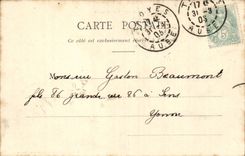 CARTE POSTALE
Ce côté est exclusivement
TROYES
AUBE
17
31
AUBE
Monsieur Gaston Beaumont
fils 86 grande rue 86 à Sens
Yonne